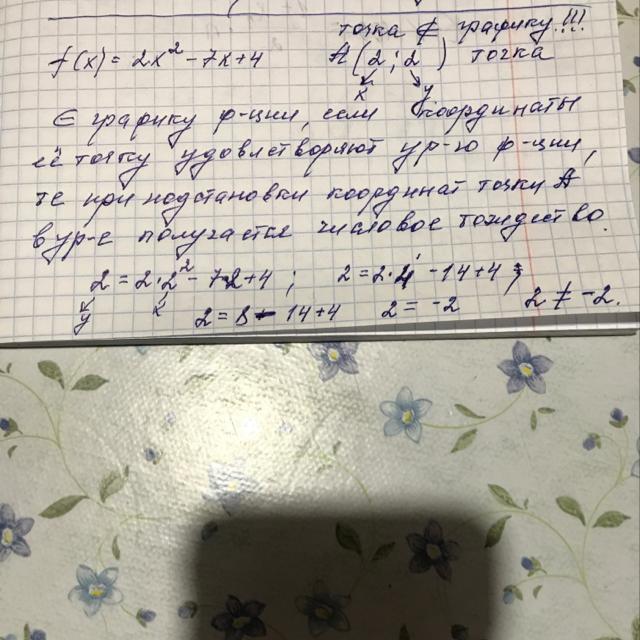 точка ∉ графику!!!
f(x) = 2x² - 7x + 4 A(2; 2) точка
x y
∈ графику ф-ции, если координаты
её точку удовлетворяют ур-ю ф-ции,
те при подстановки координат точки A
в ур-е получается числовое тождество.
2 = 2·2² - 7·2 + 4 ; 2 = 2·4 - 14 + 4 ;
y x 2 = 8 - 14 + 4 2 = -2 2 ≠ -2.